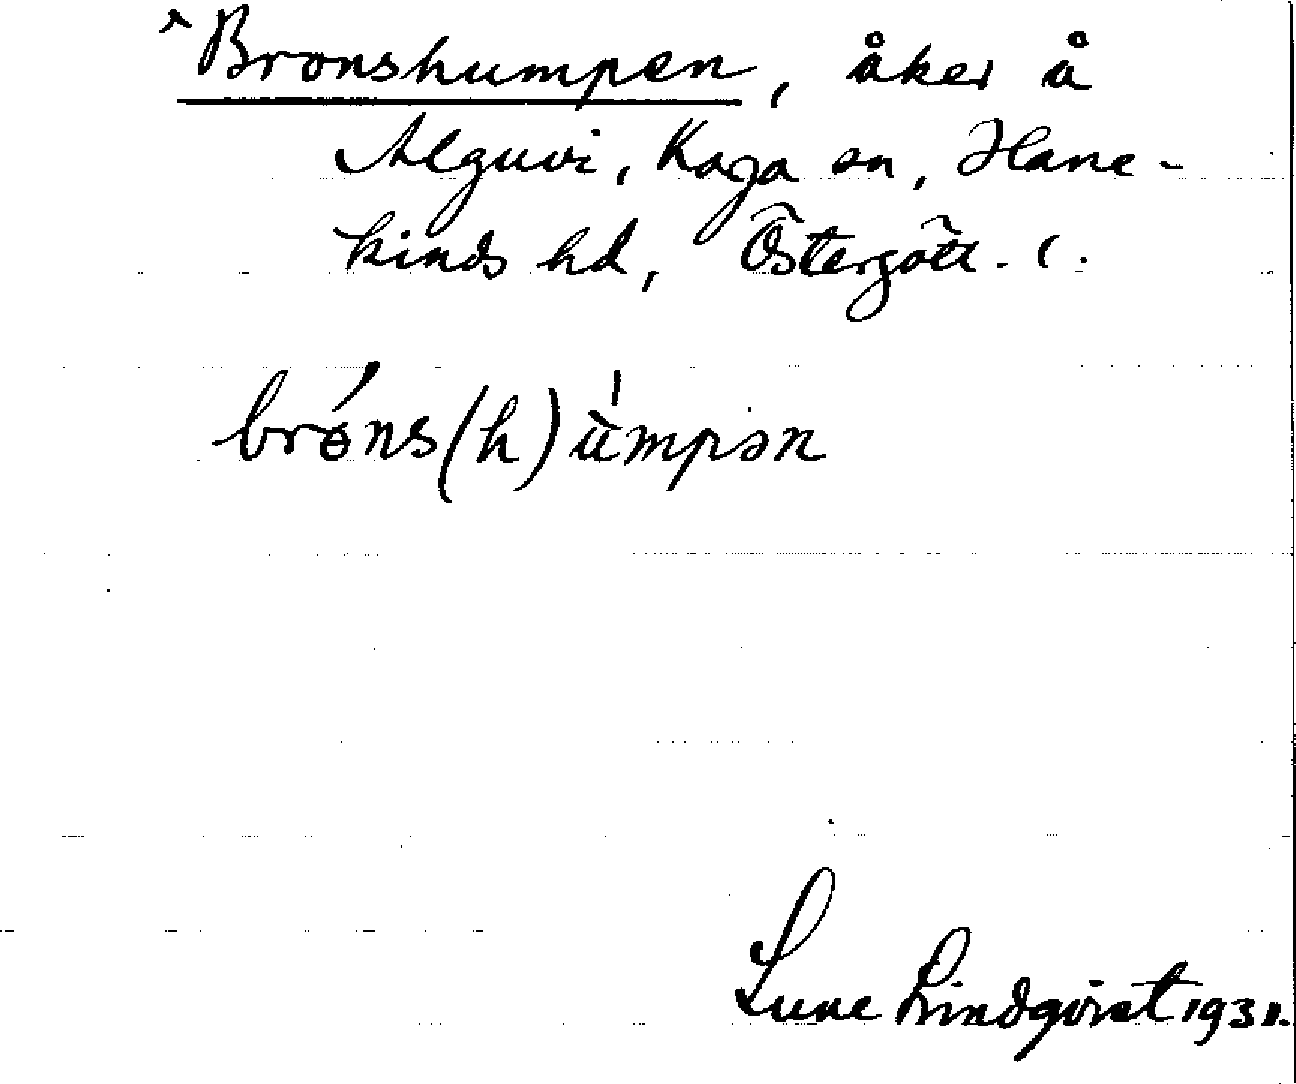 ^Bronshumpen, åker å
Alguvi, Kaga sn, Hane-
kinds hd, Östergötl. l.
brǿns(h)ùmpən
Sune Lindqvist 1931.